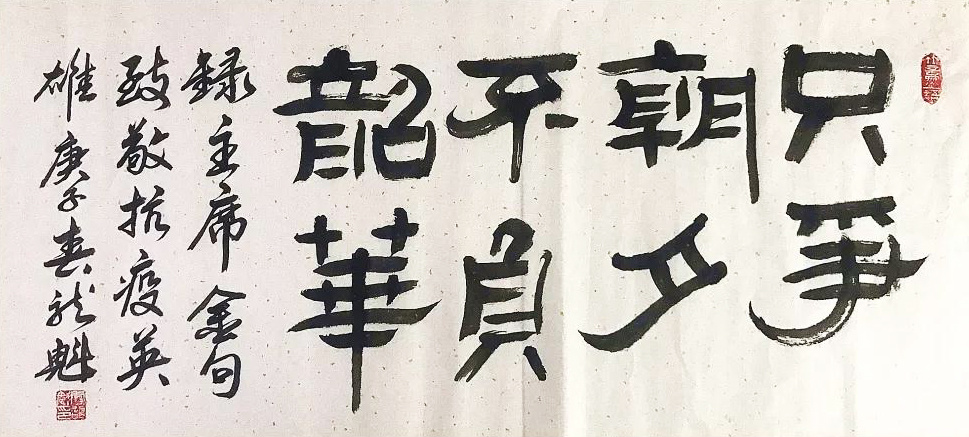 只爭
朝夕
不負
韶華
録主席金句
致敬抗疫英
雄庚子春龙魁